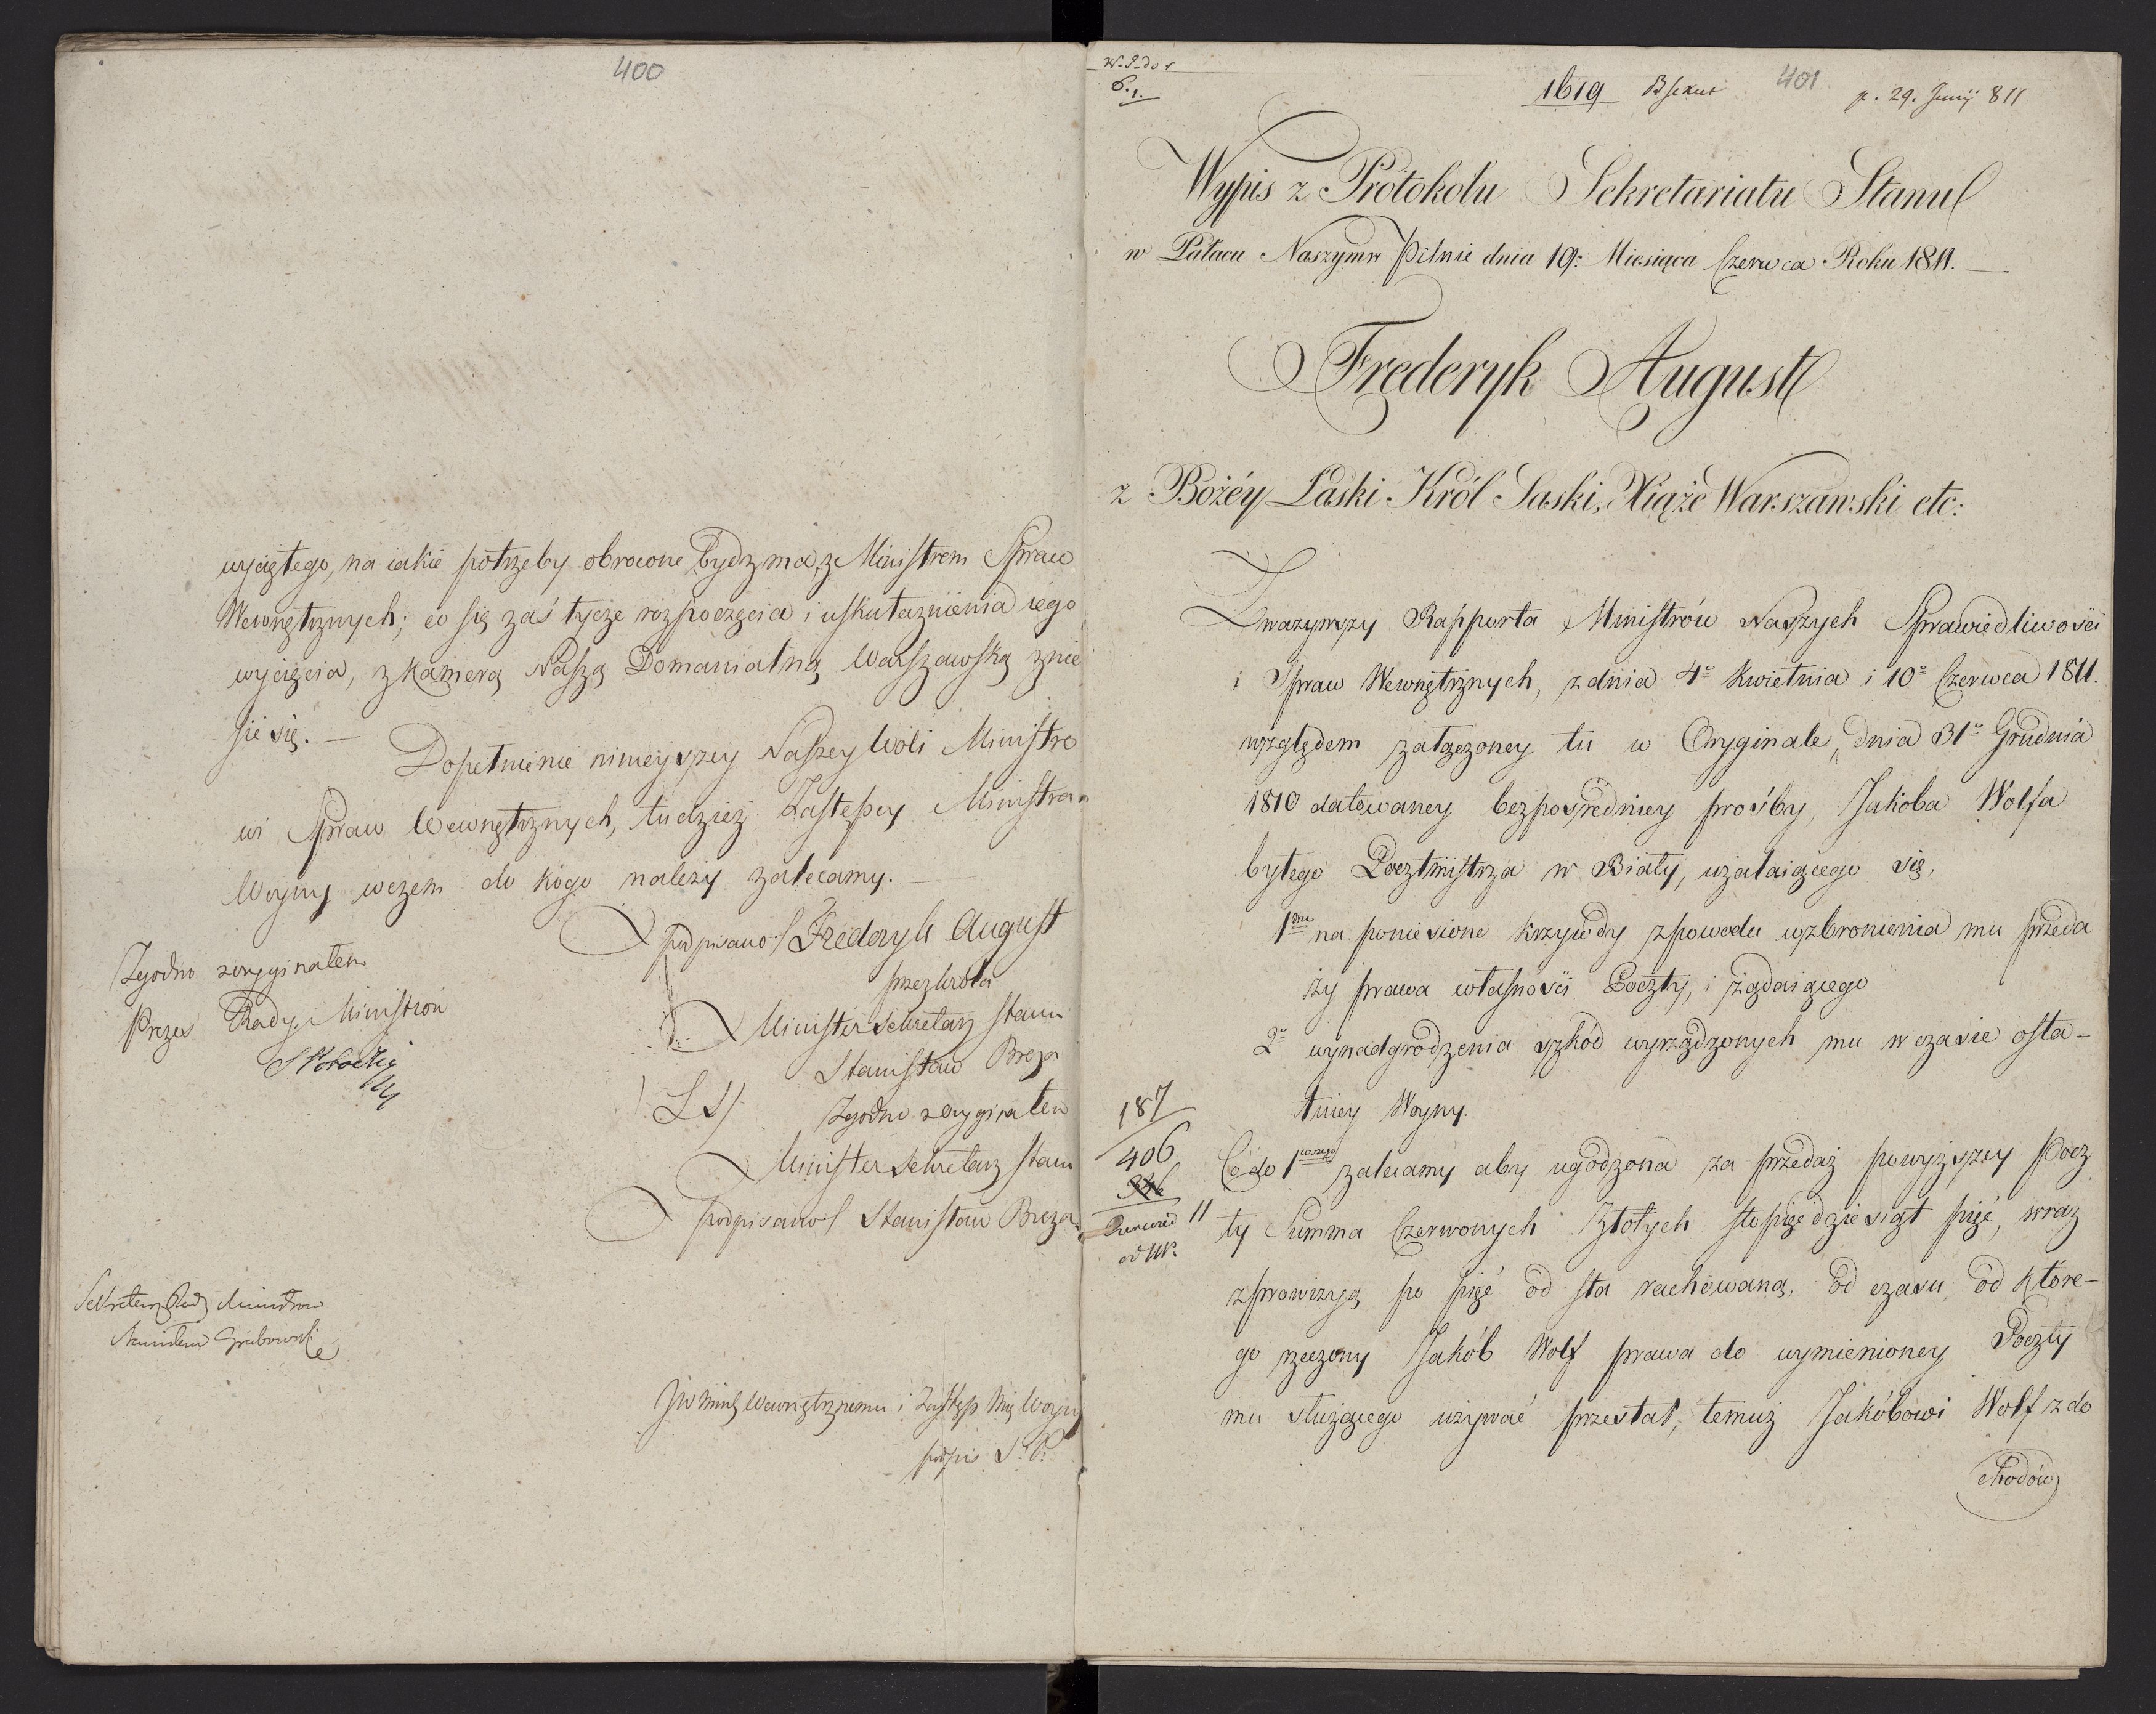 400
wyciętego, na iakie potrzeby obrocone bydz ma, z Ministrem Spraw
Wewnętrznych; co się zaś tycze rozpoczęcia i uskutecznienia iego
wycięcia, z Kamerą Naszą Domanialną Warszawską znie
sie się. —
Dopełnienie ninieyszey Naszey Woli Ministro
wi Spraw Wewnętrznych, tudzież Zastępcy Ministra
Woyny wczem do kogo należy zalecamy. —
podpisano Frederyk August
przez Króla
Minister Sekretarz Stanu
Stanisław Breza
(L. S.) Zgodno z oryginałem
Minister Sekretarz Stanu
podpisano Stanisław Breza
Zgodno z oryginałem
Prezes Rady Ministrów
Sekretarz Rady Ministrów
Stanisław Grabowski
JW Mins Wewnętrznemu i Zastęp Mis Woyny
podpis S. P.
6.1.
1619 401 p. 29. Junij 811
Wypis z Protokołu Sekretariatu Stanu
w Pałacu Naszym w Pilnie dnia 19. Miesiąca Czerwca Roku 1811. —
Frederyk August
z Bożéy Łaski Król Saski, Xiąże Warszawski etc:
Zważywszy Rapporta Ministrów Naszych Sprawiedliwości
i Spraw Wewnętrznych, z dnia 4º Kwietnia i 10º Czerwca 1811.
względem załączoney tu w Oryginale, dnia 31º Grudnia
1810 datowaney bezpośredniey prośby, Jakóba Wolfa
byłego Pocztmistrza w Biały, użalaiącego się,
1mo na poniesione krzywdy z powodu wzbronienia mu przeda
ży prawa własności Poczty, i żądaiącego
2º wynadgrodzenia szkód wyrządzonych mu w czasie osta-
tniey Woyny.
187
406
346
11
od
Co do 1wszego zalecamy aby ugodzona za przedaż powyższey Pocz
ty Summa Czerwonych Złotych sto pięcdziesiąt pięć, wraz
z prowizyą po pięć od sta rachowaną, od czasu, od które-
go rzeczony Jakób Wolf prawa do wymienioney Poczty
mu służącego używać przestał, temuż Jakóbowi Wolf z do
chodów